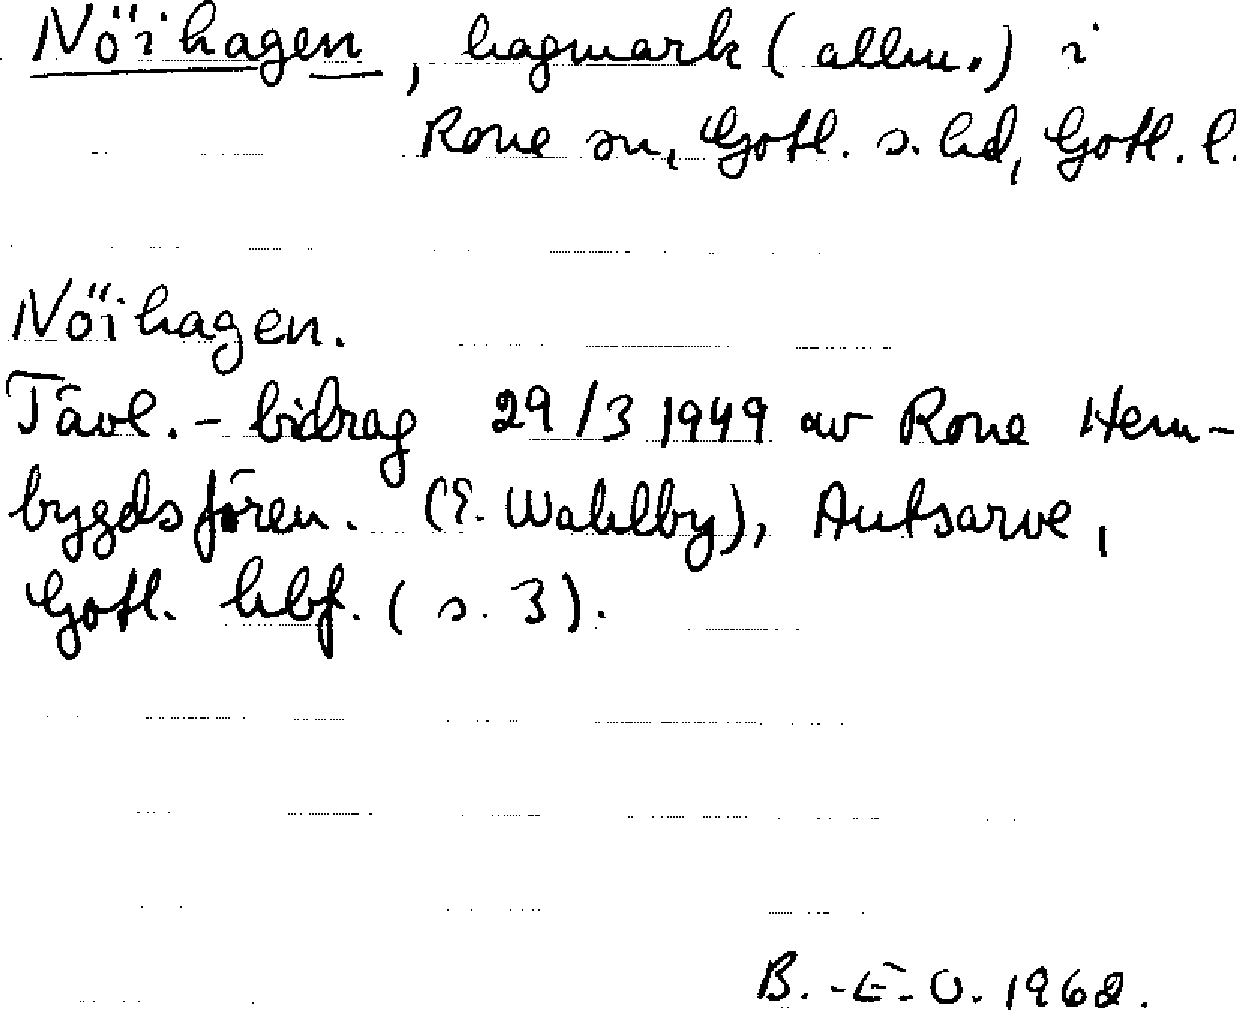 Nöihagen, hagmark (allm.) i
Rone sn, Gotl. s. hd, Gotl. l.
Nöihagen.
Tävl. - bidrag 29/3 1949 av Rone Hem-
bygdsfören. (E. Wahlby), Autsarve,
Gotl. hbf. (s. 3).
B. - E. O. 1962.